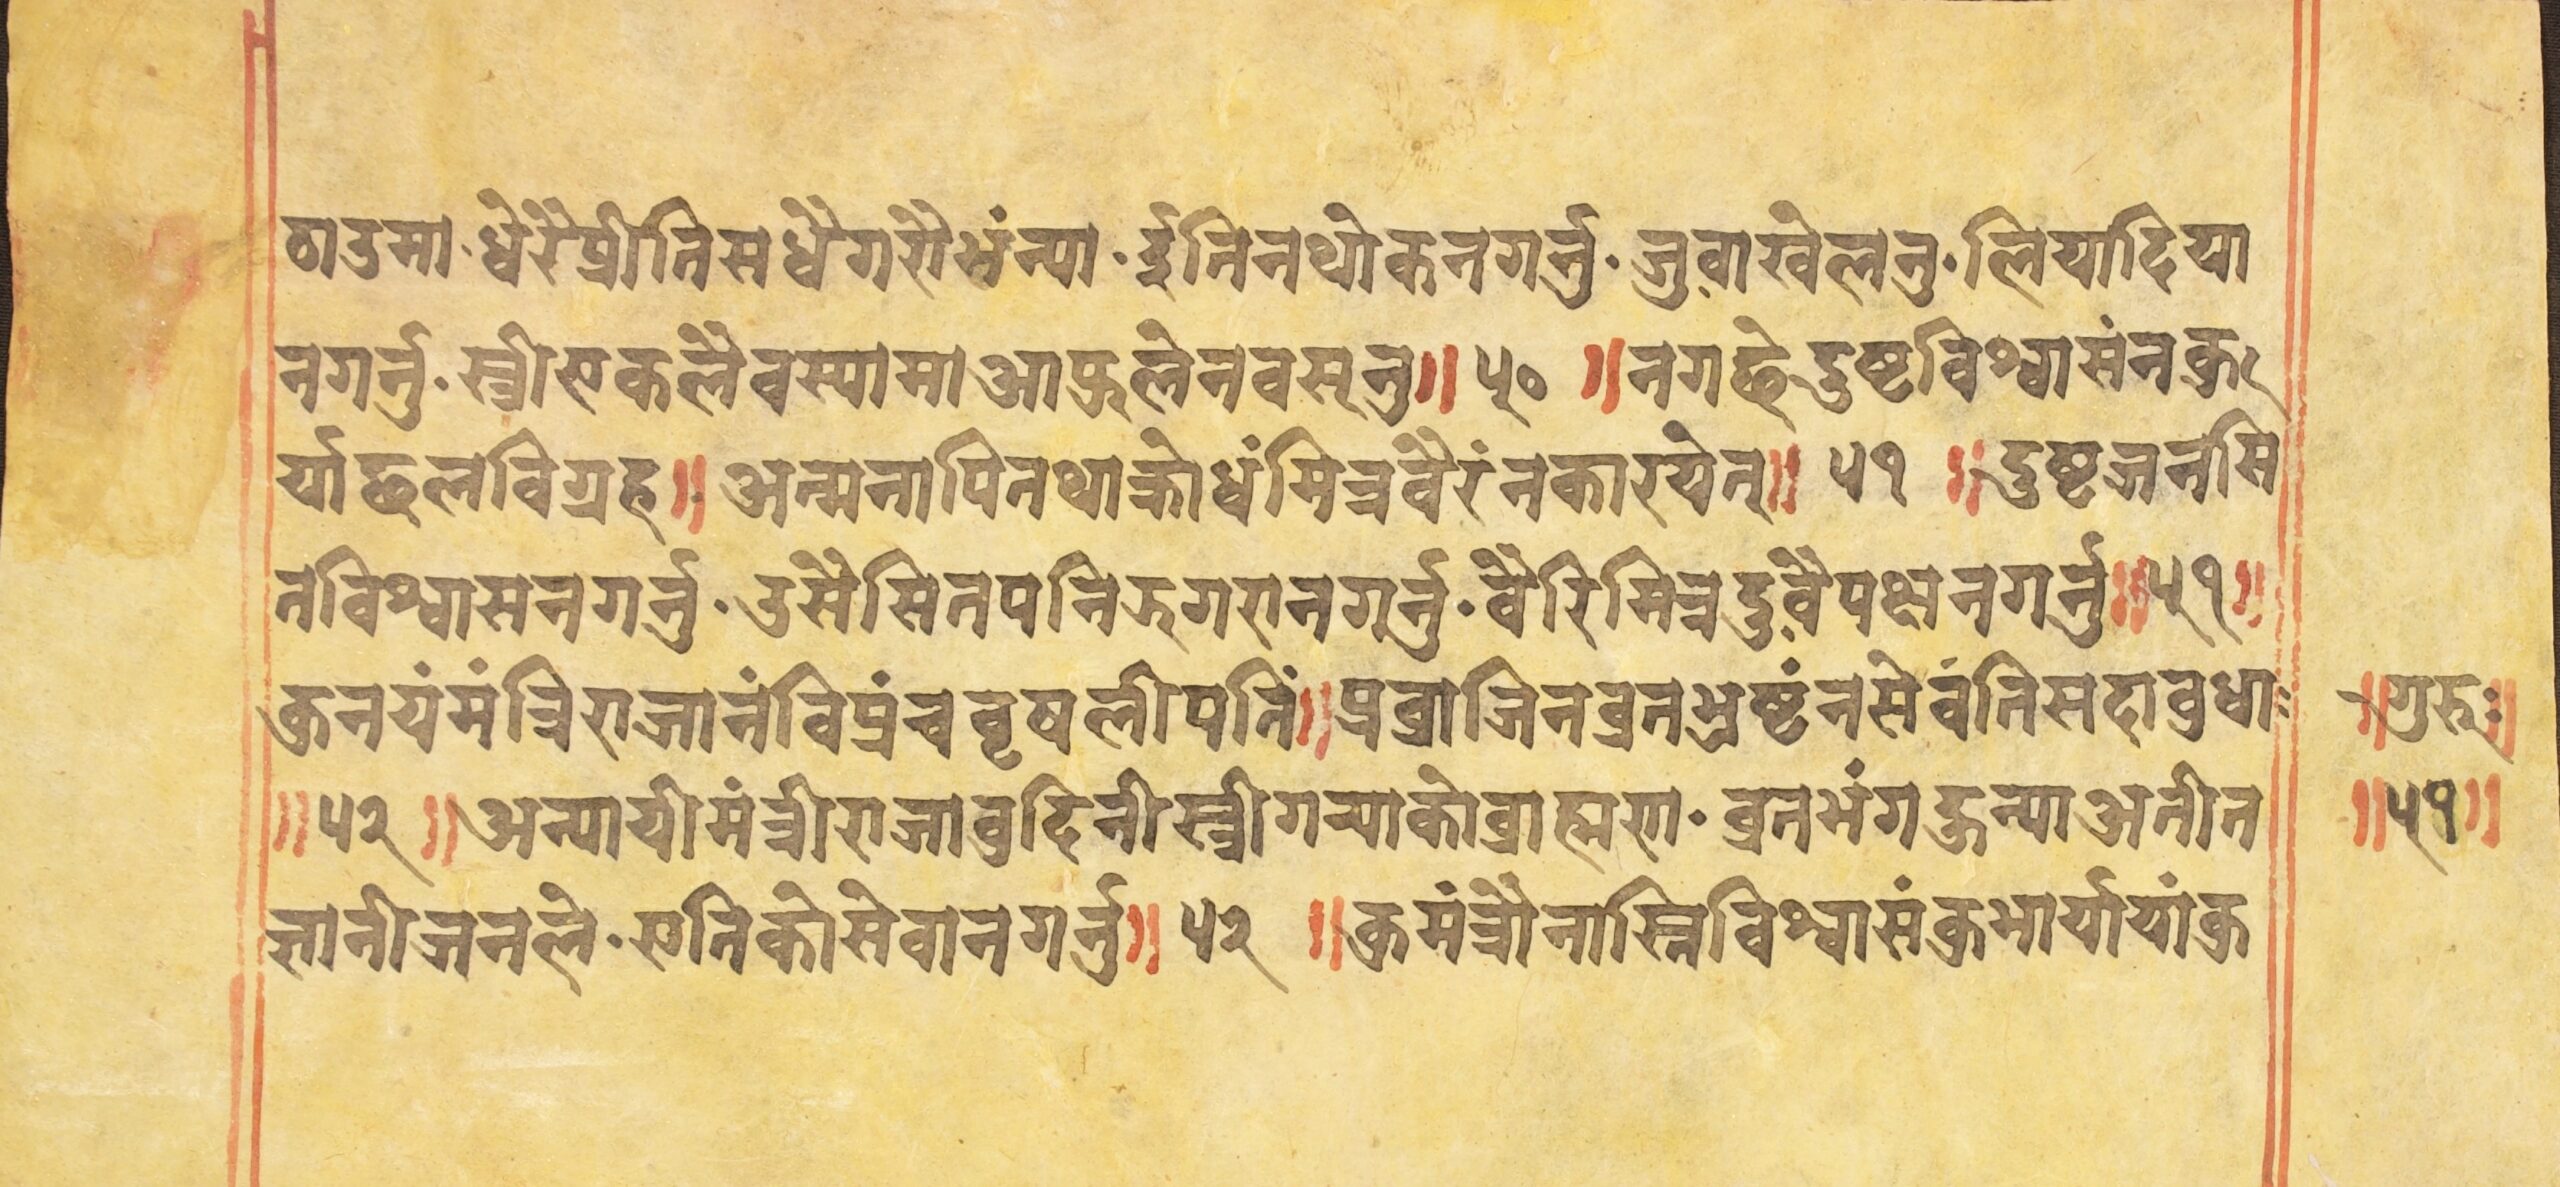 ठाउमा·धेरैप्रीतिसधैगरौभंन्या·ईतिनथोकनगर्नु·जुवाखेलनु·लियादिया
नगर्नु·स्त्रीसकलैवस्यामाआफुलेनवस्नु॥ ५० ॥नगछेदुष्टविश्वासंनकुर
र्याछलविग्रह॥ अन्मनापिनथाक्रोधंमित्रवैरंनकारयेत्॥ ५१ ॥दुष्टजनसि
तविश्वासनगर्नु·उसैसितपनिझगरानगर्नु·वैरिमित्रदुवैपक्षनगर्नु॥५१॥
कुनयंमंत्रिराजानंविप्रंचवृषलीपतिं॥प्रव्राजिनव्रतभ्रष्टंनसेवंतिसदावुधाः ॥गुरूः॥
॥५२॥ अन्यायीमंत्रीराजावुदिनीस्त्रीगर्‍याकोव्राह्मण·व्रतभंगहुन्याअतीत ॥५१॥
ज्ञानीजनले·एतिकोसेवानगर्नु॥ ५२ ॥कुमंत्रौनास्तिविश्वासंकुभार्यायांकु